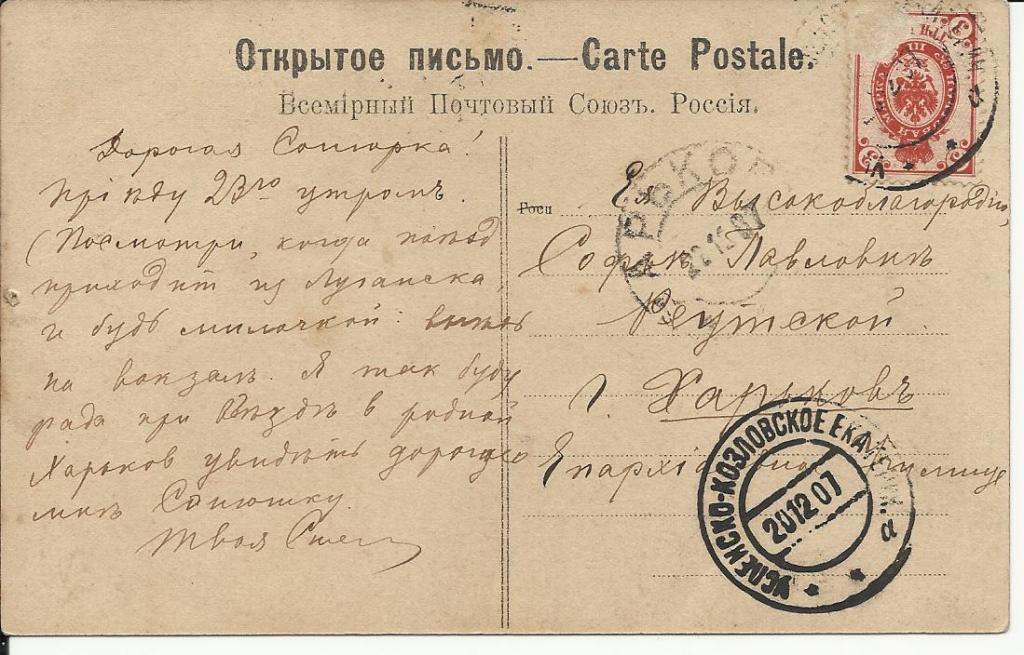 Открытое письмо.—Carte Postale.
Всемірный Почтовый Союзъ. Россія.
Дорогая Сонюрка!
Пріѣду 23го утромъ.
(Посмотри, когда поѣзд
приходит из Луганска,
и будь милочкой
на вокзалѣ. Я так буду
рада при въѣздѣ в родной
Харьков увидѣть дорогую
мнѣ Сонюшку.
Твоя
Ея Высокоблагородію
Софіи Павловнѣ
г. Харьковъ
Епархіальное училище
УСПЕНСКО-КОЗЛОВСКОЕ ЕКАТЕРИН.
20 12 07
а
ХАРЬКОВ